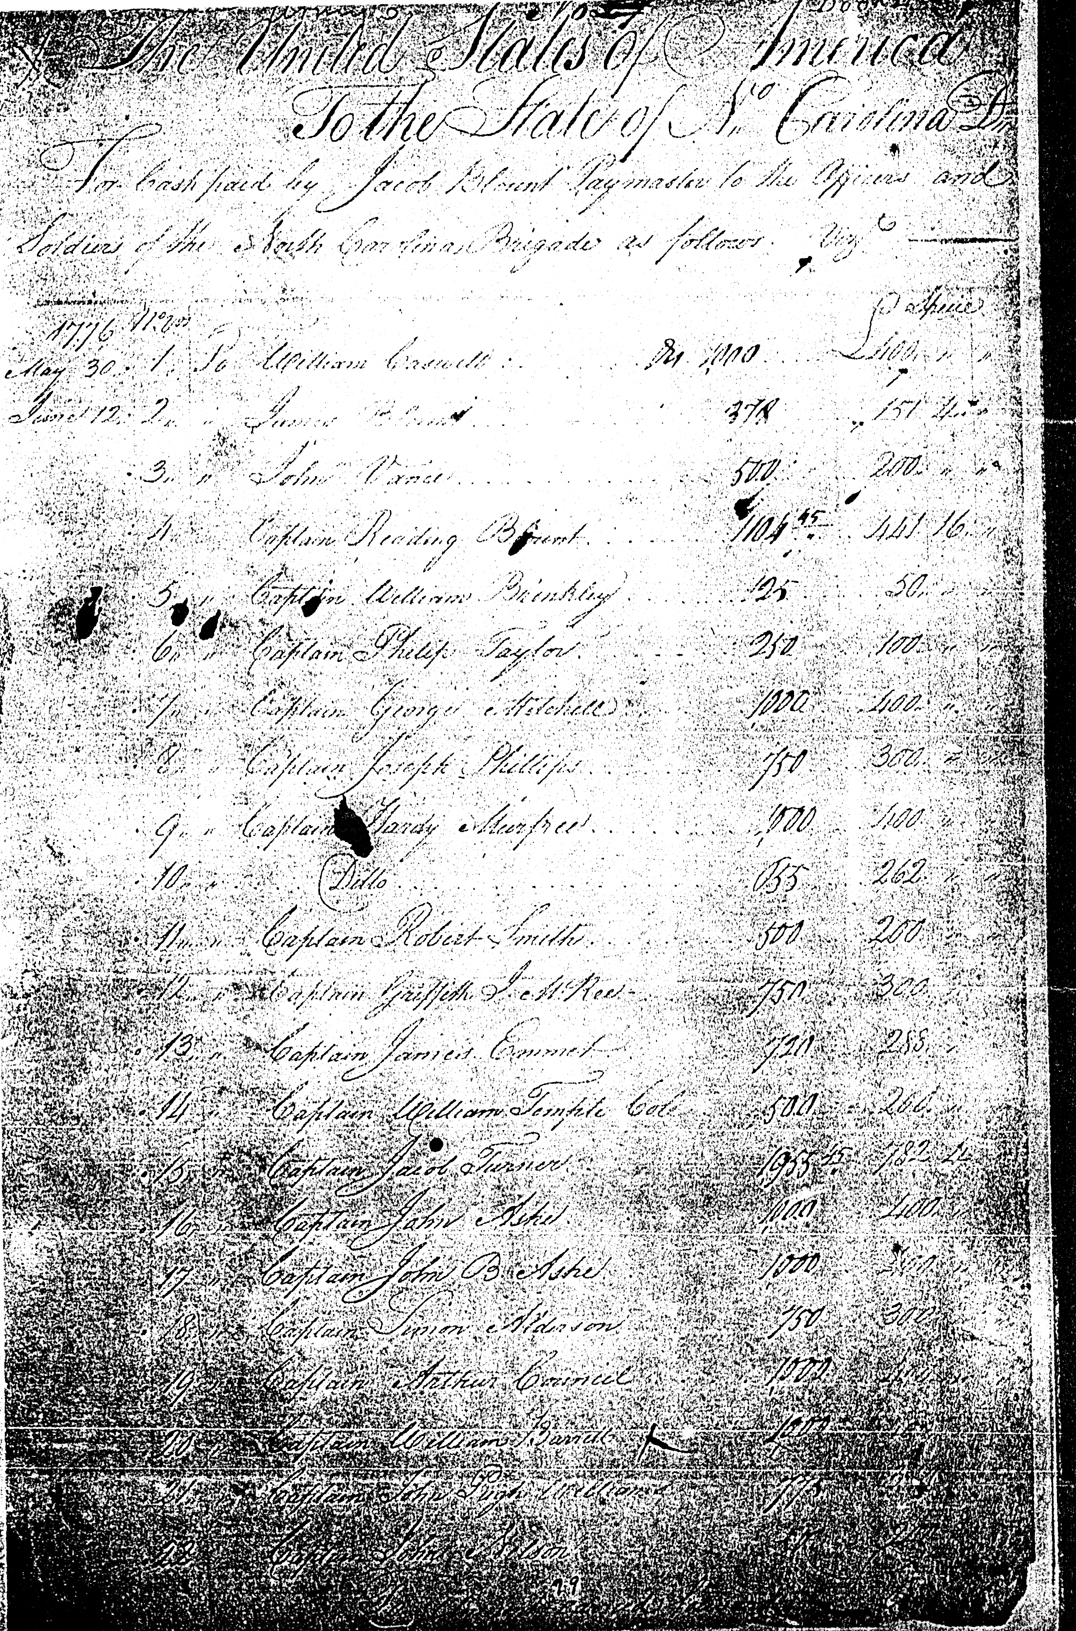 The United States of America
To the State of No Carolina Dr
For Cash paid by Jacob Blount Paymaster to the Officers and
Soldiers of the North Carolina Brigade as follows. Viz
1776 No £ Specie
May 30 1 To William Caswell Drs 1000 400 " "
June 12 2 " James Blount 378 151 4 "
3 " John Vance 500 200 " "
4 " Captain Reading Blount 1104 45 441 16 "
5 " Captain William Brinkley 125 50 " "
6 " Captain Philip Taylor 250 100 " "
7 " Captain George Mitchell 1000 400 " "
8 " Captain Joseph Phillips 750 300 " "
9 " Captain Hardy Murfree 1000 400 "
10 " Ditto 655 262 " "
11 " Captain Robert Smith 500 200 " "
12 " Captain Griffith J McRee 750 300 "
13 " Captain James Emmet 720 288 "
14 " Captain William Temple Cole 500 200 "
15 " Captain Jacob Turner 1955 45 782 4
16 " Captain John Ashe 1000 400
17 " Captain John B Ashe 1000 400 "
18 " Captain Simon Alderson 750 300
19 " Captain Arthur Council 1000
20 " Captain William 1000
21 " Captain John Pugh Williams 775
22 Captain John Nelson